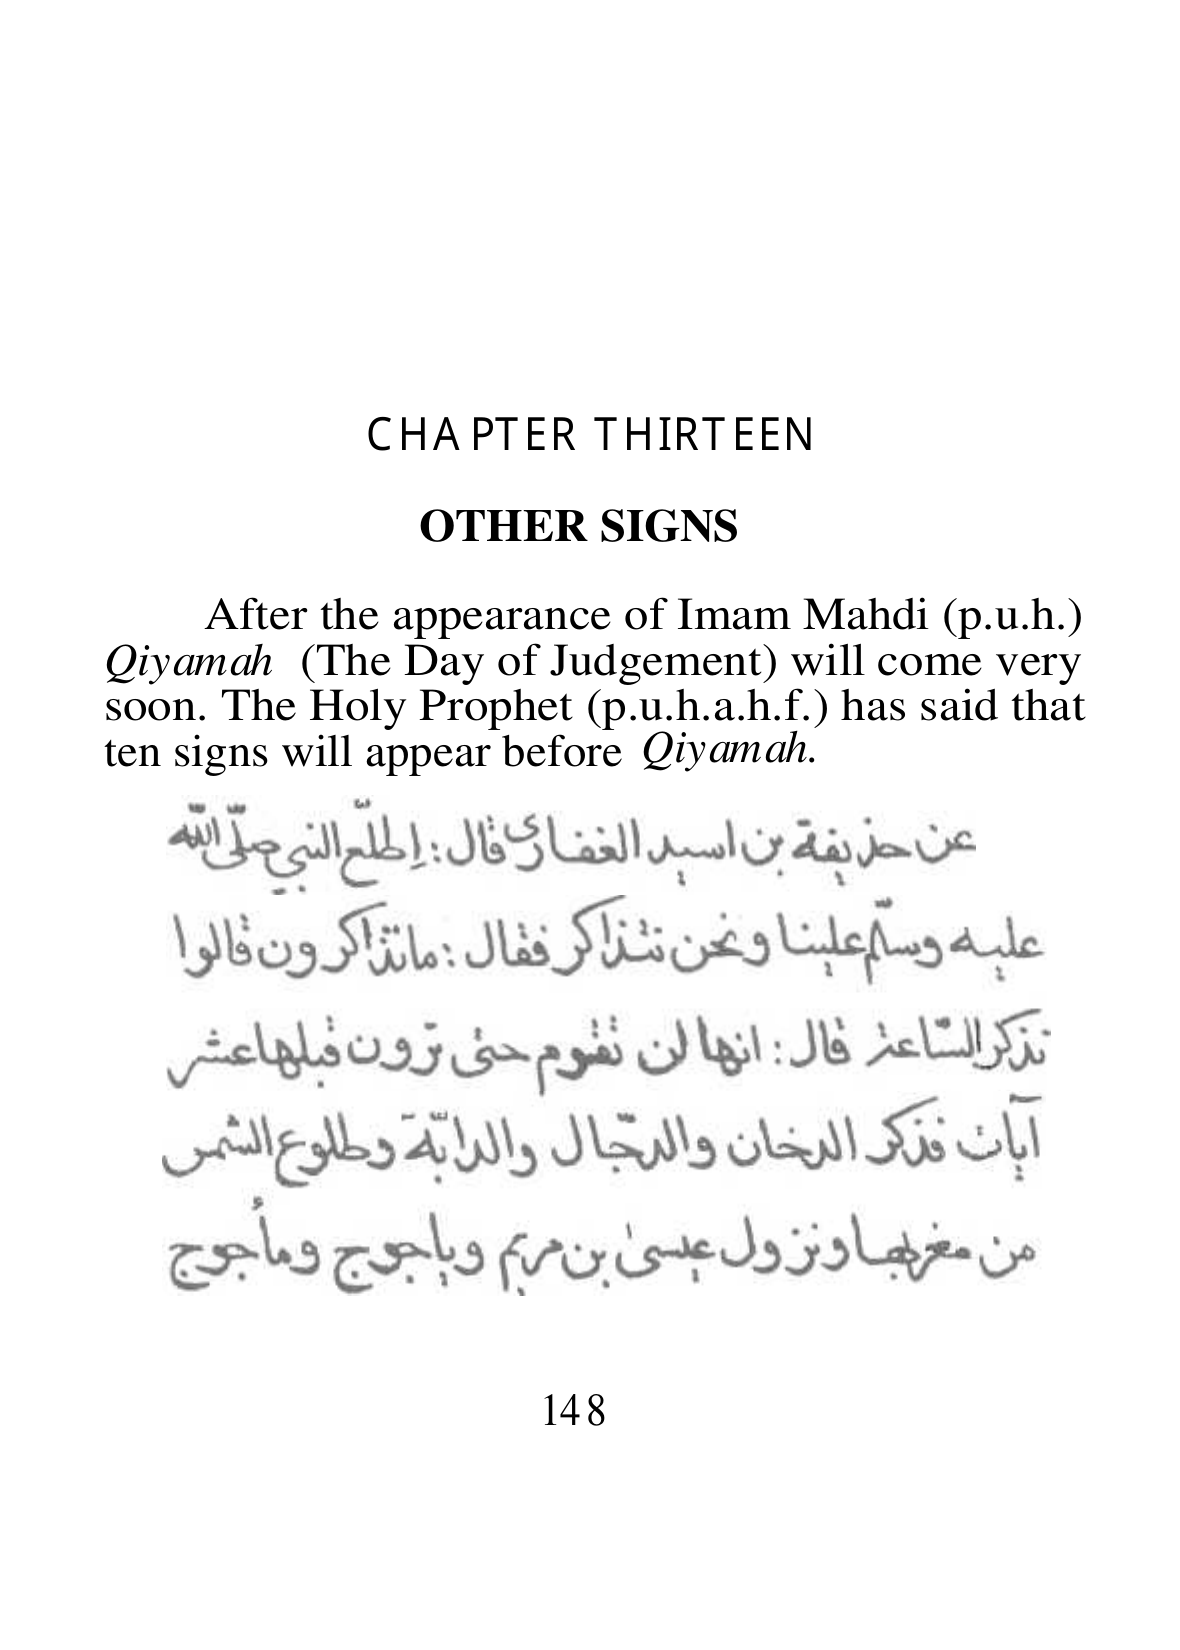 CHAPTER THIRTEEN
OTHER SIGNS
After the appearance of Imam Mahdi (p.u.h.)
Qiyamah (The Day of Judgement) will come very
soon. The Holy Prophet (p.u.h.a.h.f.) has said that
ten signs will appear before Qiyamah.
عن حذيفة بن اسيد الغفارى قال: إطلّع النبي صلّى اللّه
عليه وسلّم علينا ونحن نتذاكر فقال: ماتذاكرون قالوا
نذكر السّاعة قال: انها لن تقوم حتى ترون قبلها عشر
آيات فذكر الدخان والدجّال والدابّة وطلوع الشمس
من مغربها ونزول عيسىٰ بن مريم وياجوج ومأجوج
148